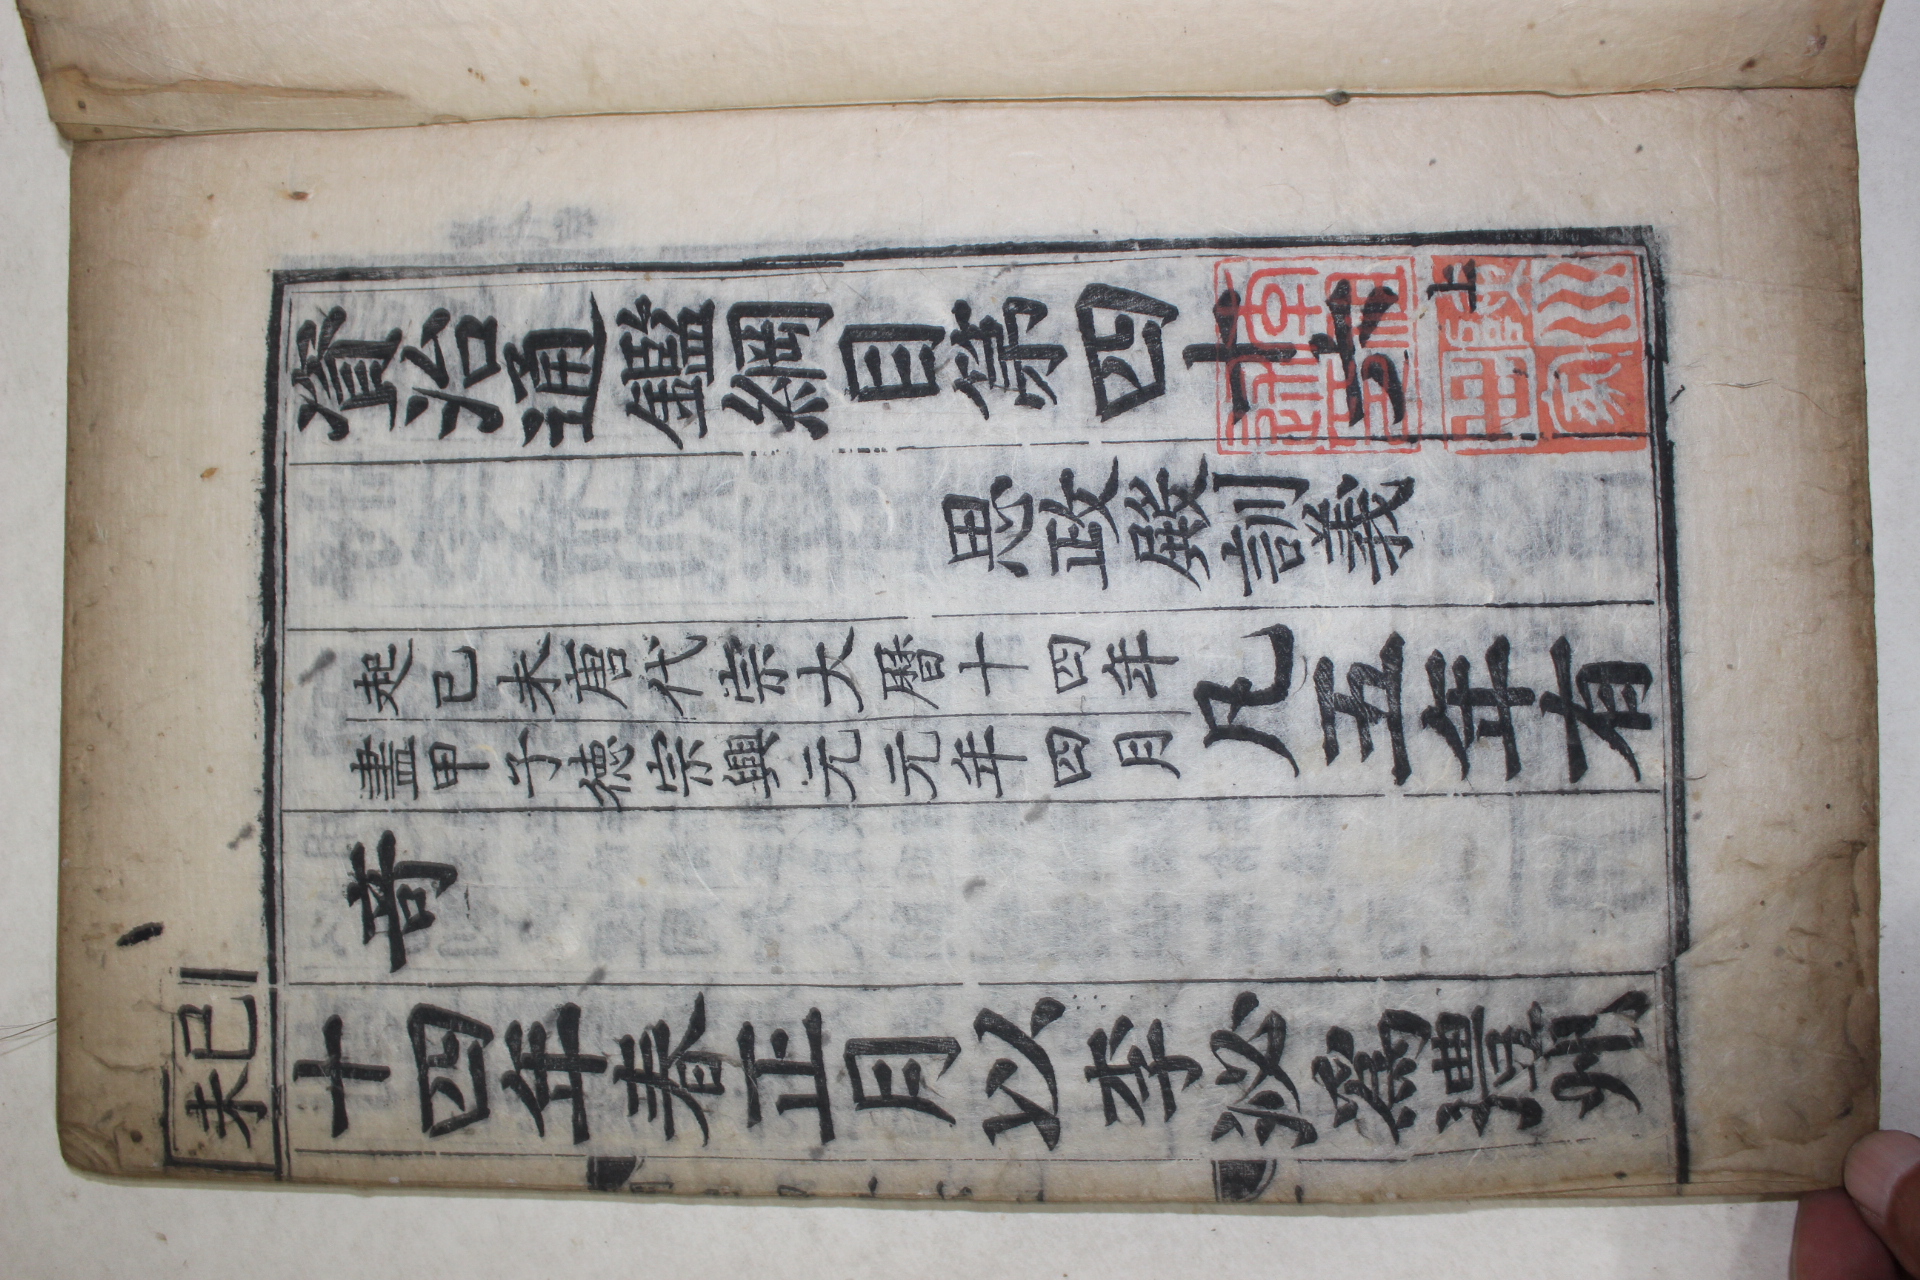 資治通鑑綱目第四十五上
思政殿訓義
起己未唐代宗大曆十四年
盡甲子德宗興元元年四月
凡五年有
奇
己未
十四年春正月以李泌爲澧州